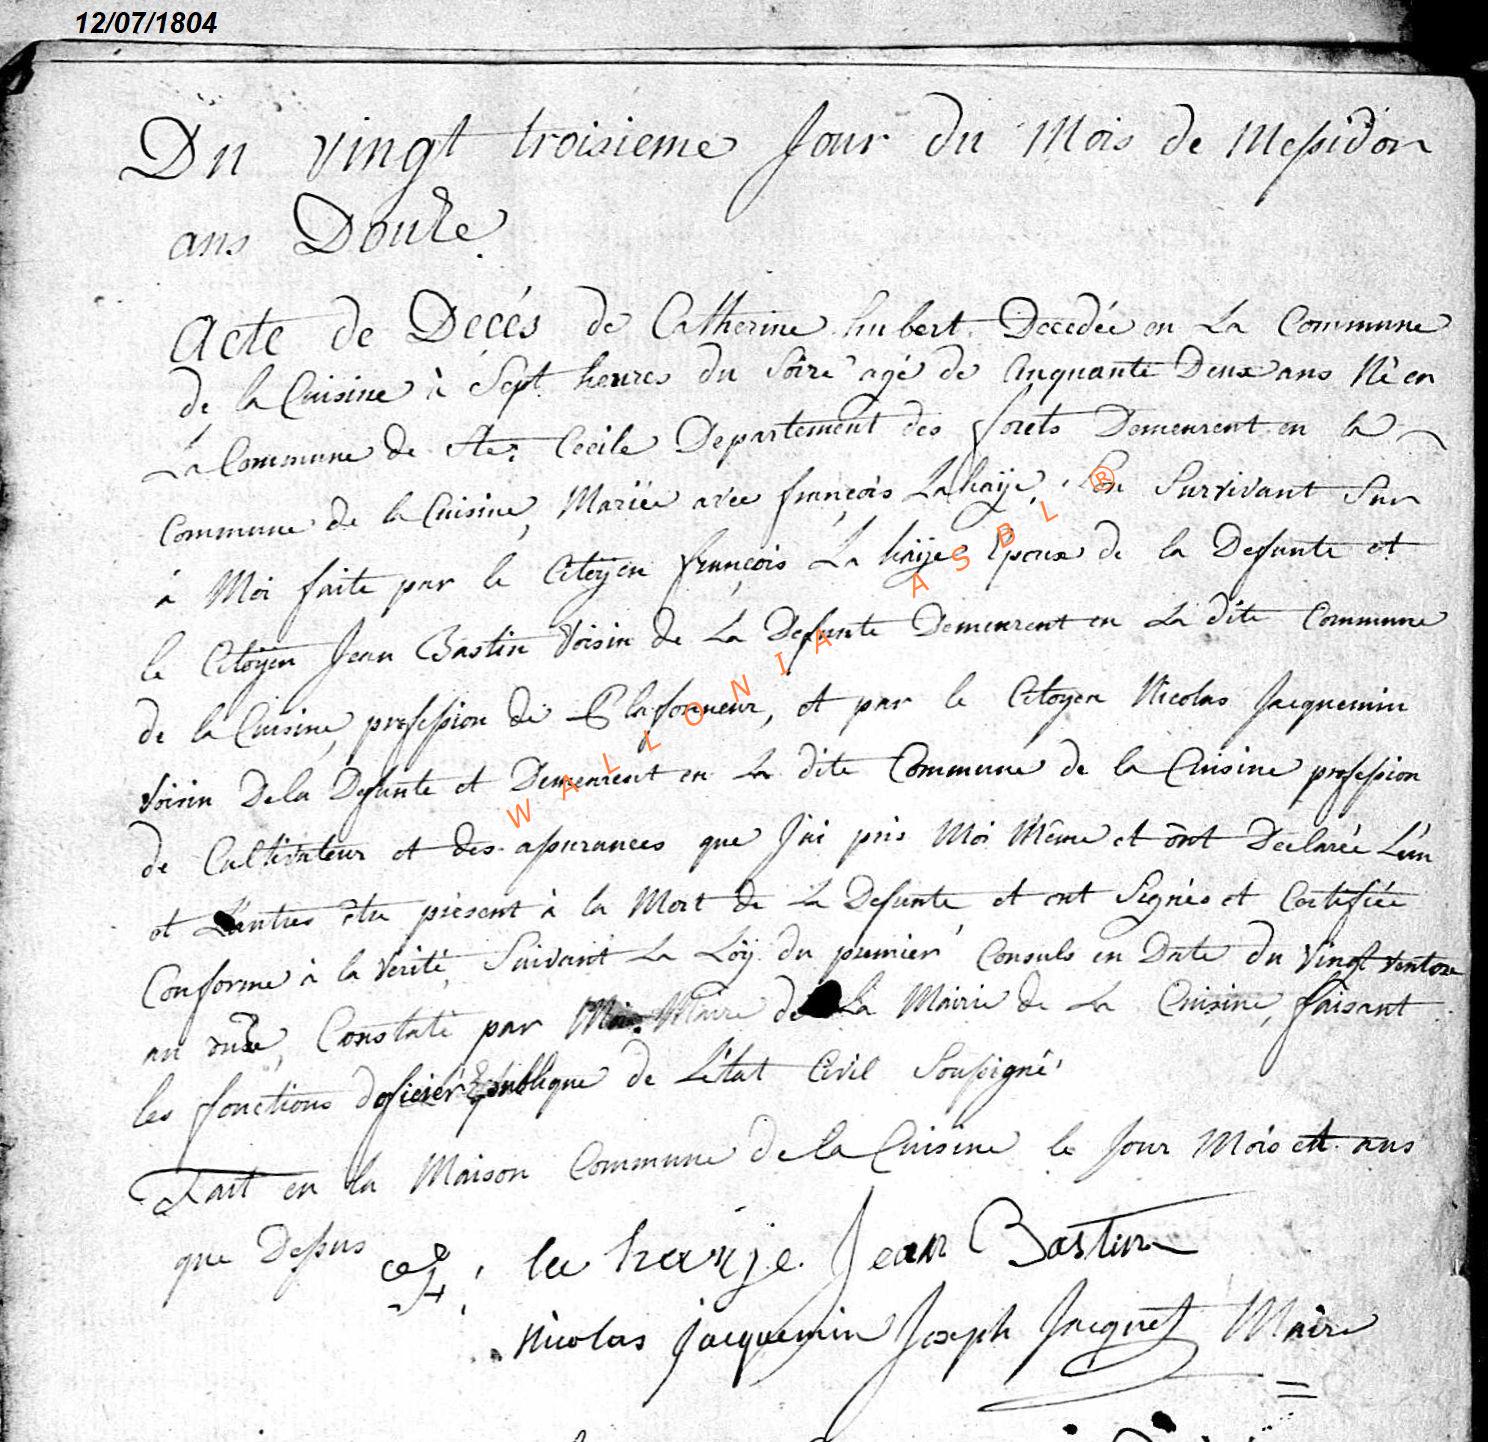 12/07/1804
Du vingt troisieme Jour du Mois de Messidor
ans Douze
Acte de Decés de Catherine hubert Decedée en La Commune
de la Cuisine à Sept heures du Soire agé de Cinquante Deux ans Né en
La Commune de Ste. Cecile Departement des forets Demeurent en la
Commune de la Cuisine, Mariée avec françois La haÿe, Survivant Sur
à Moi faite par le Citoyen françois La haÿe Epoux de la Defunte et
le Citoÿen Jean Bastin Voisin de La Defunte Demeurent en La dite Commune
de la Cuisine, profession de Plafonneur, et par le Citoyen Nicolas Jacquemin
Voisin De la Defunte et Demeurent en La dite Commune de la Cuisine profession
de Cultivateur et des assurances que J'ai pris Moi Même et ont Declarée L'un
et L'autres etre présent à la Mort de La Defunte et ont Signés et Certifiée
Conforme à la verité, Suivant La Loÿ du premier Consuls en Date du vingt ventose
an onze, Constaté par Maire de La Mairie de La Cuisine, faisant
les fonctions d'oficier publique de L'état Civil Soussigné
Fait en la Maison Commune de la Cuisine le Jour Mois et ans
que Dessus
la haÿe Jean Bastin
Nicolas Jacquemin Joseph Jacquet Maire
WALLONIA ASBL ®